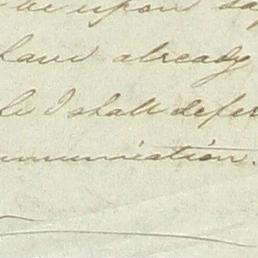 be upon
have already
I shall defer
mmunication.